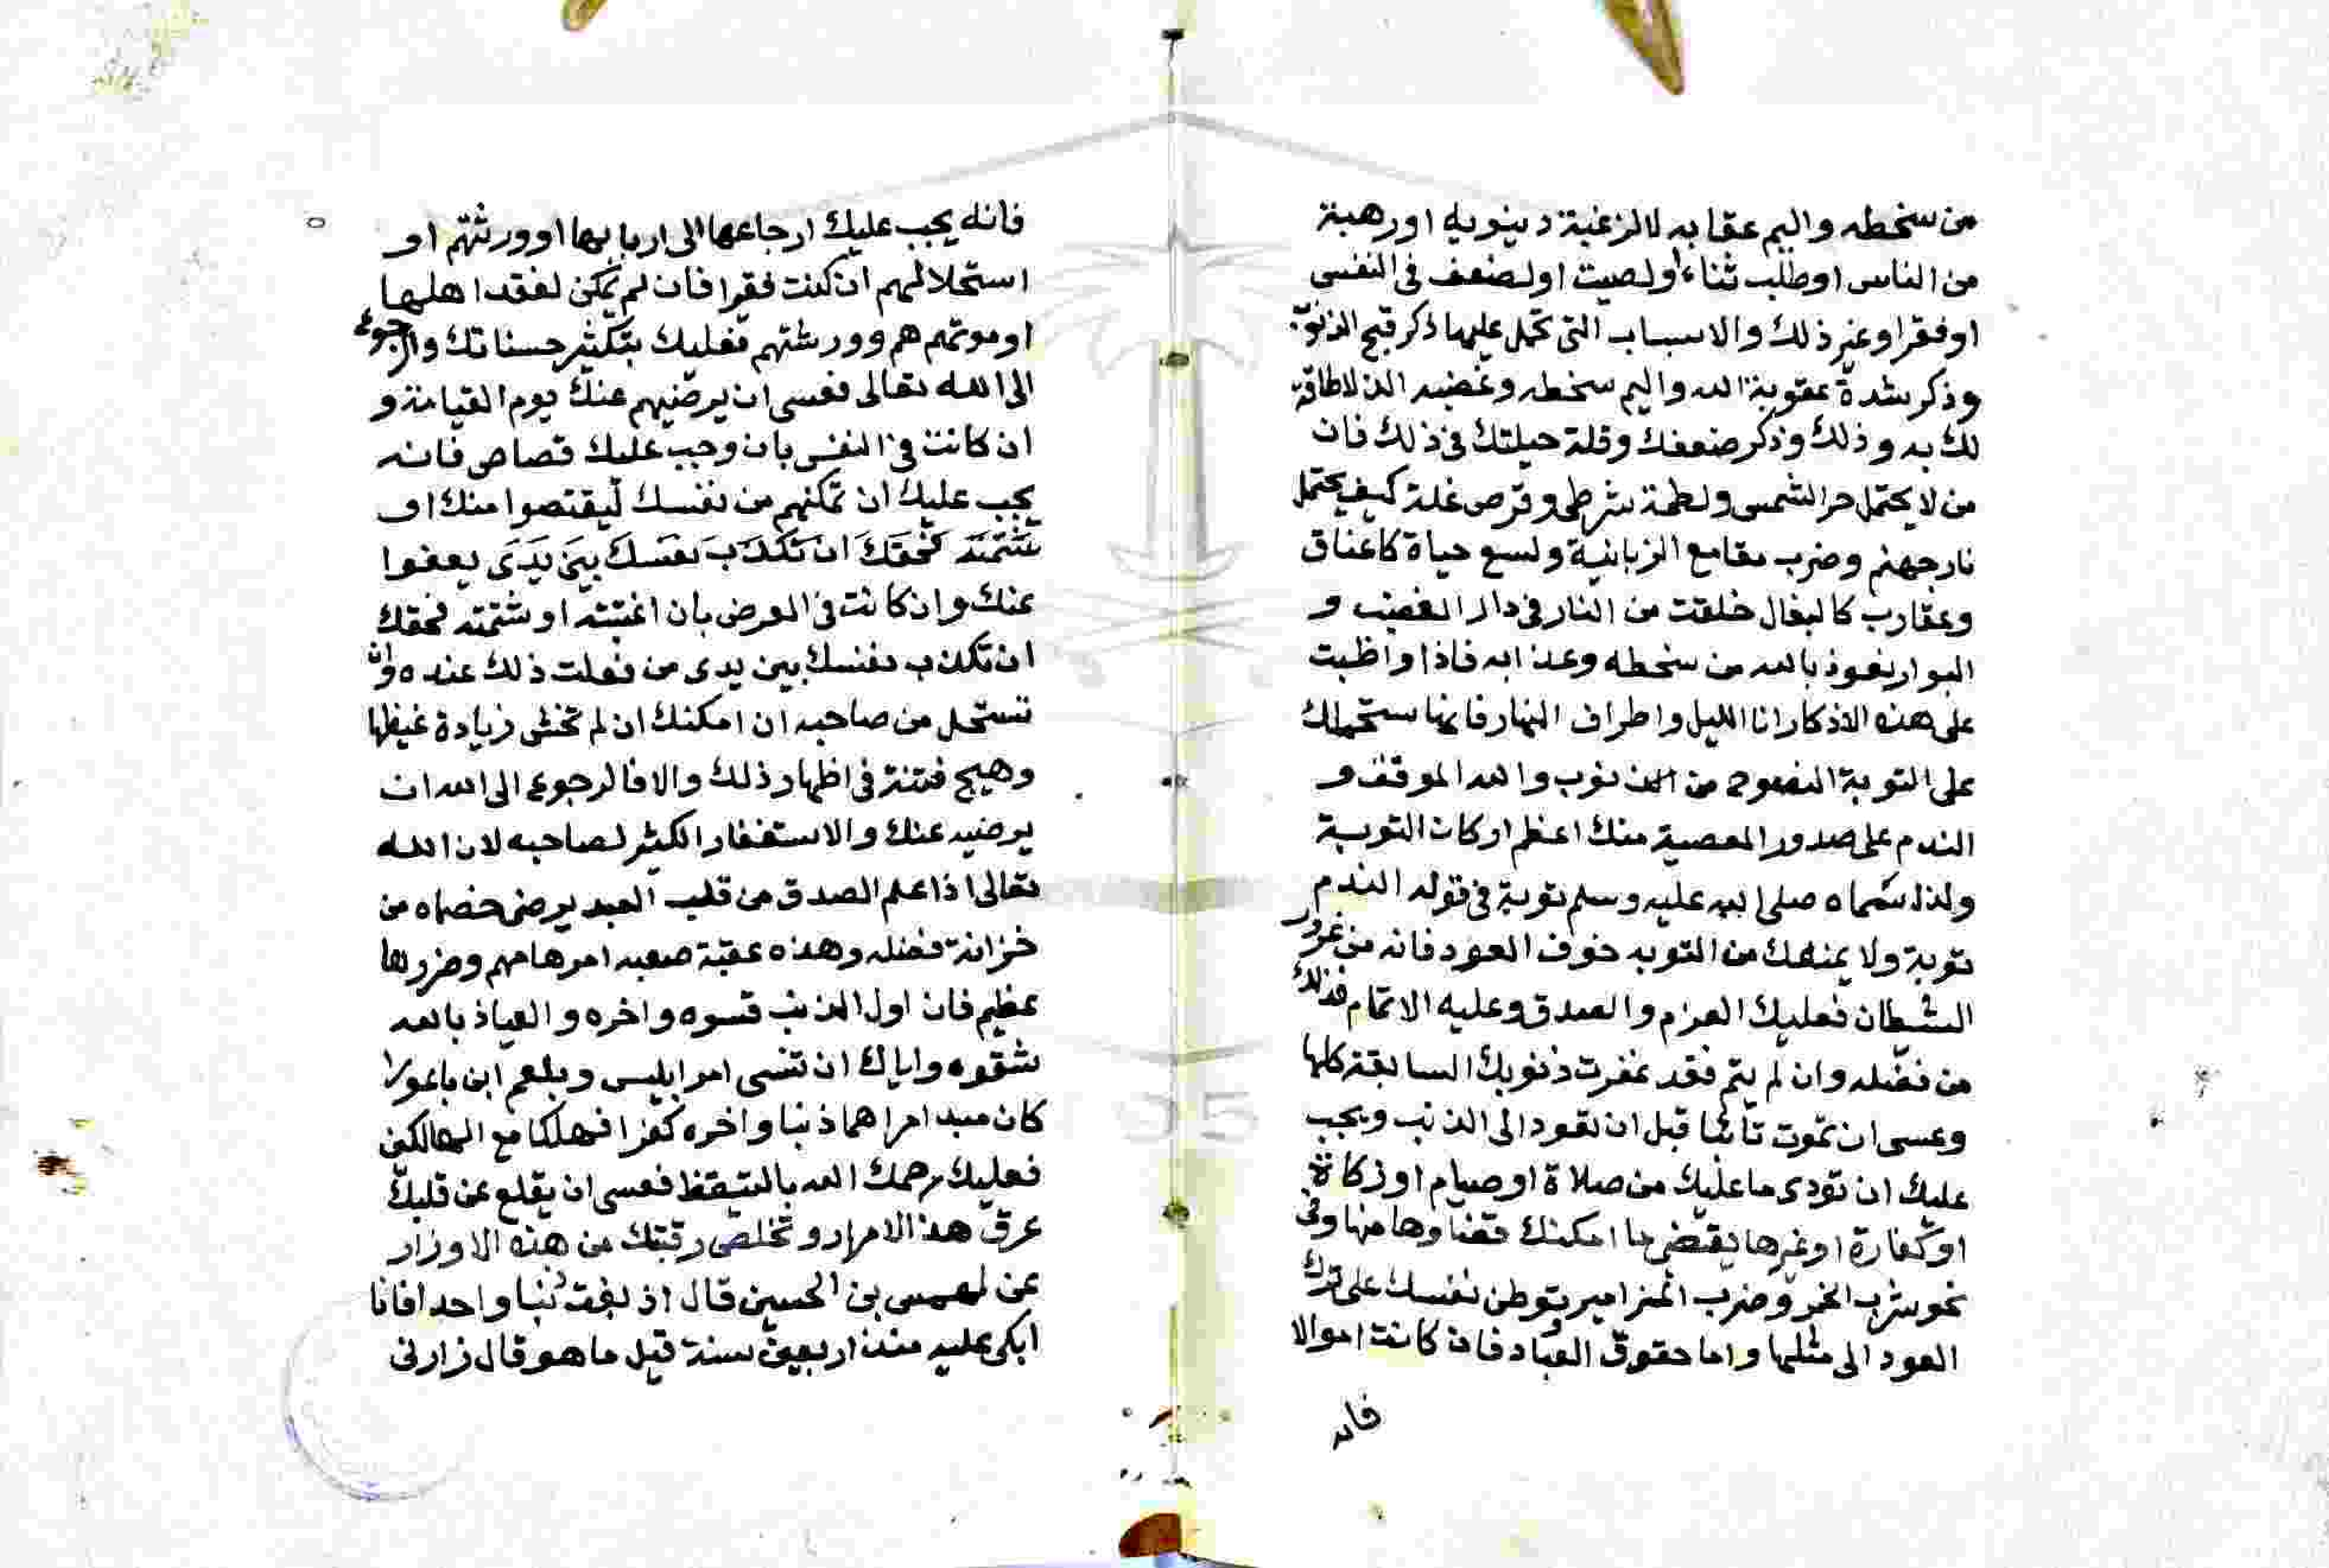 من سخطه واليم عقابه لا لرغبة دينويه او رهبة
من الناس او طلب ثناء او لصيت او لضعف فى النفس
او فقرا وغير ذلك والاسباب التى تحمل عليها ذكر قبح الذنوب
وذكر شدة عقوبة الله واليم سخطه وغضبه الذ لا طاقة
لك به وذلك وذكر ضعفك وقلة حيلتك فى ذلك فان
من لا يحتمل حر الشمس ولطمة شرطى وقرص نملة كيف يحتمل
نار جهنم وضرب مقامع الزبانية ولسع حياة كاعناق
وعقارب كالبغال خلقت من النار فى دار الغضب و
البوار نعوذ بالله من سخطه وعذابه فاذا واظبت
على هذه الاذكار انا الليل واطراف النهار فانها ستحملك
على التوبة النصوح من الذنوب والله الموفق و
الندم على صدور المعصية منك اعظم اركان التوبة
ولذا سماه صلى الله عليه وسلم توبة فى قوله الندم
توبة ولا يمنعك من التوبه خوف العود فانه من غرور
الشيطان فعليك العزم والصدق وعليه الاتمام فذلك
من فضله وان لم يتم فقد غفرت ذنوبك السابقة كلها
وعسى ان تموت تائبا قبل ان تعود الى الذنب ويجب
عليك ان تودى ما عليك من صلاة او صيام او زكاة
او كفارة او غيرها يقتضى ما امكنك قضاوها منها وفى
نحو شرب الخمر وضرب المزامير توطن نفسك على ترك
العود الى مثلها واما حقوق العباد فان كانت اموالا
فانه
فانه يجب عليك ارجاعها الى اربابها او ورثتهم او
استحلالهم ان كنت فقيرا فان لم يمكن لفقد اهلها
او موتهم هم وورثتهم فعليك بتكثير حسناتك والرجوع
الى الله تعالى فعسى ان يرضيهم عنك يوم القيامة و
ان كانت فى النفس بان وجب عليك قصاص فانه
يجب عليك ان تمكنهم من نفسك ليقتصوا منك او
شتمته فحقك ان تكذب نفسك بين يدى يعفوا
عنك وان كانت فى العرض بان اغتبته او شتمته فحقك
ان تكذب نفسك بين يدى من فعلت ذلك عنده وان
تستحل من صاحبه ان امكنك ان لم تخش زيادة غيظها
وهيج فتنة فى اظهار ذلك والا فالرجوع الى الله ان
يرضيه عنك والاستغفار الكثير لصاحبه لان الله
تعالى اذا علم الصدق من قلب العبد يرضى خصماه من
خزانة فضله وهذه عقبة صعبه امرها مهم وضررها
عظيم فان اول الذنب قسوه واخره والعياذ بالله
شقوه واياك ان تنسى امر ابليس وبلعم ابن باعورا
كان مبدا امراهما ذنبا واخره كفرا فهلكا مع الهالكين
فعليك رحمك الله بالتيقظ فعسى ان يقلع عن قلبك
عرق هذا الامرار وتخلص رقبتك من هذه الاوزار
عن لهمس بن الحسين قال اذنبت ذنبا واحدا فانا
ابكى عليه منذ اربعين سنة قيل ما هو قال زارنى